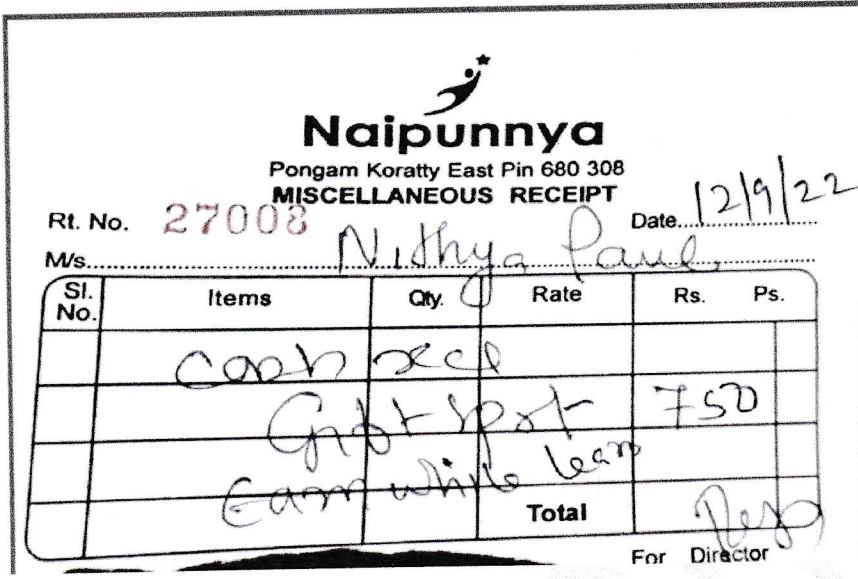 Naipunnya
Pongam Koratty East Pin 680 308
MISCELLANEOUS RECEIPT
Rt. No. 27008 Date 12/9/22
M/s Nithya Paul
Sl. No. Items Qty. Rate Rs. Ps.
Cash recd
Gift spot 750
Earn while learn
Total
For Director